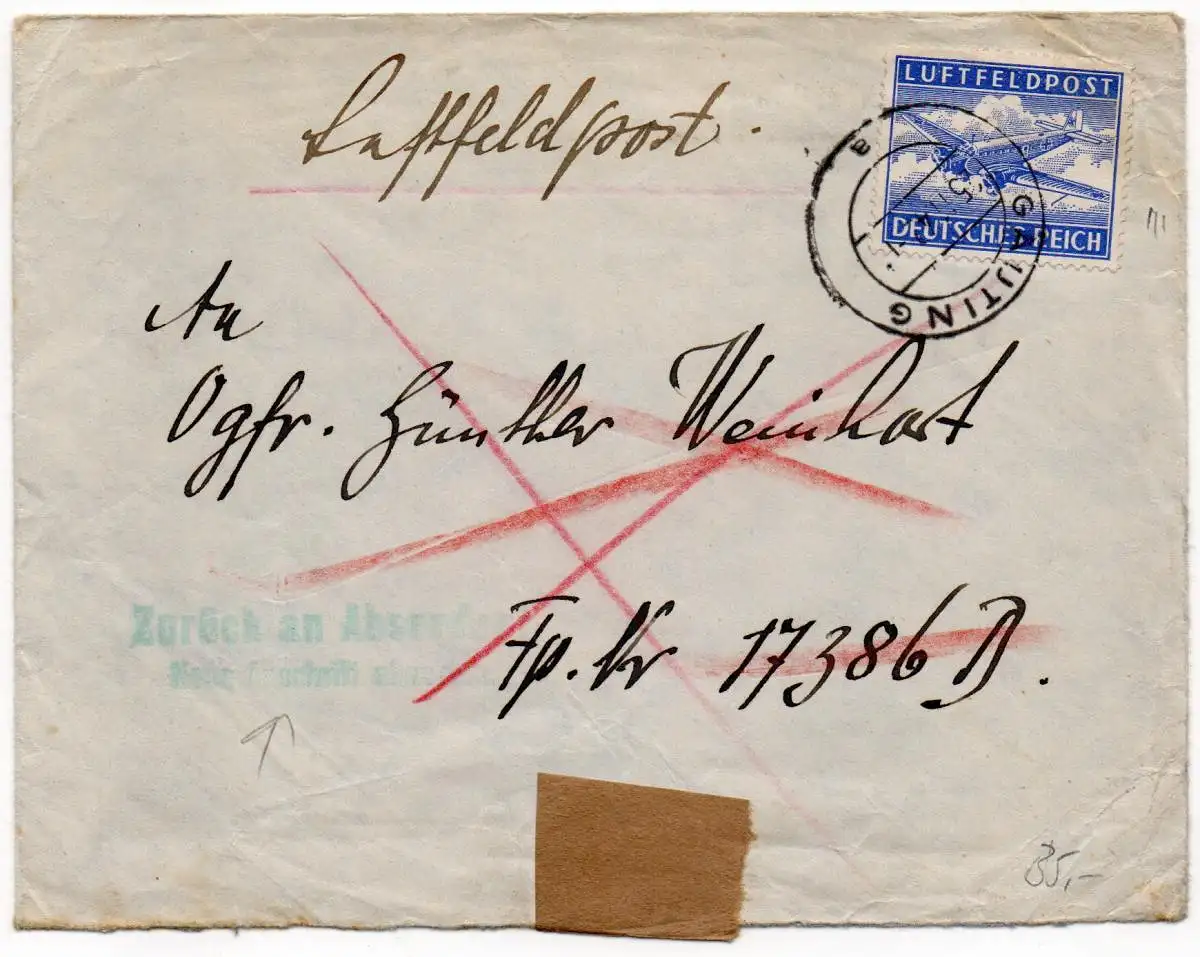 Luftfeldpost.
LUFTFELDPOST
DEUTSCHES REICH
GAUTING
a
An
Ogfr. Günther Weinhart
Zurück an Absender
Neue Anschrift abwarten
Fp. Nr 17386 D.
35,-